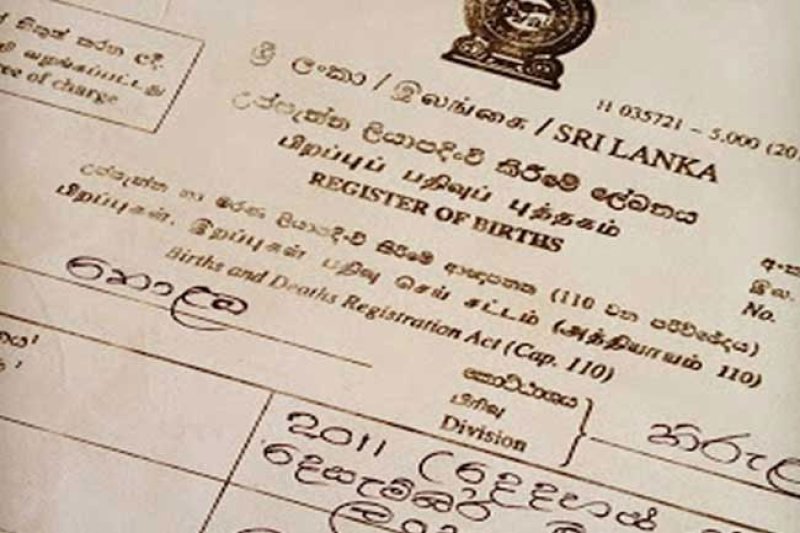 සිකුත් කරන ලදී.
வழங்கப்பட்டது
of charge
ශ්‍රී ලංකා / இலங்கை / SRI LANKA
11 035721 – 5,000 (20
උප්පැන්න ලියාපදිංචි කිරීමේ ලේඛනය
பிறப்புப் பதிவுப் புத்தகம்
REGISTER OF BIRTHS
උප්පැන්න හා මරණ ලියාපදිංචි කිරීමේ ආඥාපනත (110 වන පරිච්ඡේදය)
பிறப்புகள், இறப்புகள் பதிவு செய் சட்டம் (அத்தியாயம் 110)
Births and Deaths Registration Act (Cap. 110)
අංක
இல.
No.
කොළඹ
කොට්ඨාශය
பிரிவு
Division
2011 (දෙදහස්
දෙසැම්බර්